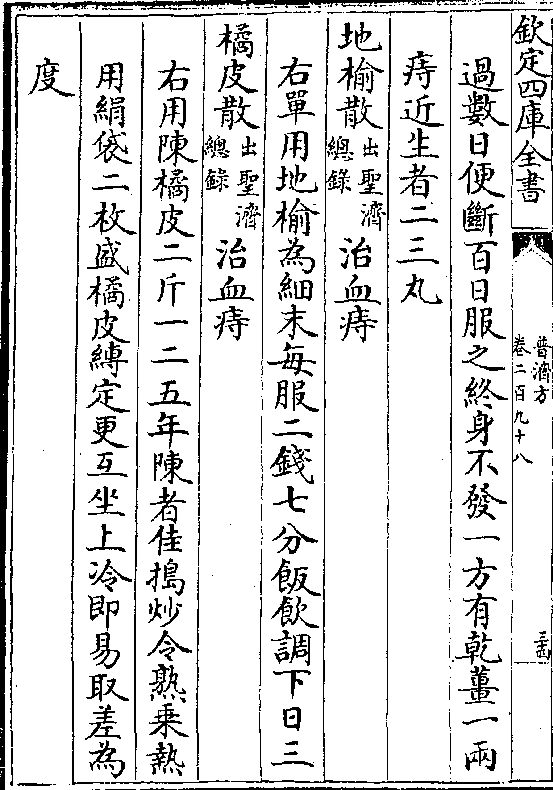 欽定四庫全書
普濟方
卷二百九十八
過數日便斷百日服之終身不發一方有乾薑一兩
痔近生者二三丸
地榆散出聖濟總錄治血痔
右單用地榆為細末每服二錢七分飯飲調下日三
橘皮散出聖濟總錄治血痔
右用陳橘皮二斤一二五年陳者佳搗炒令熟乗熱
用絹袋二枚盛橘皮縛定更互坐上冷即易取差為
度